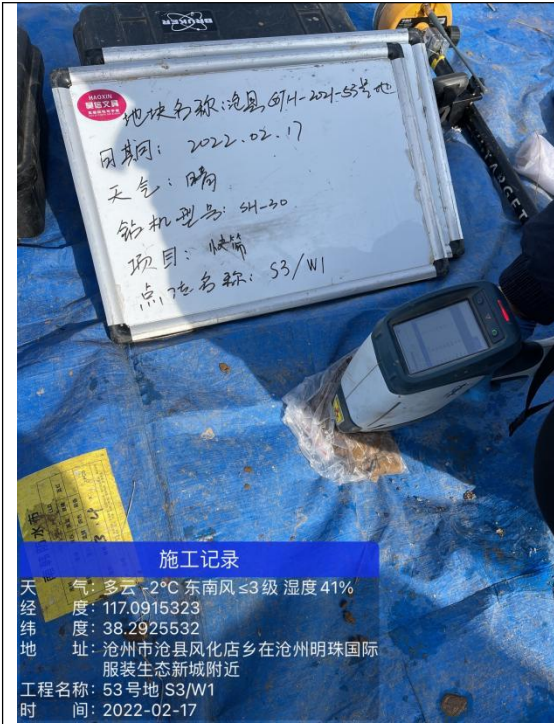 BRUKER
HAOXIN
晨信文具
地块名称:沧县CZTH-2021-53号地
日期: 2022.02.17
天气:晴
钻机型号:SH-30
项目:快筛
点位名称:S3/W1
施工记录
天 气:多云 -2°C 东南风≤3级 湿度41%
经 度:117.0915323
纬 度:38.2925532
地 址:沧州市沧县风化店乡在沧州明珠国际
服装生态新城附近
工程名称:53号地 S3/W1
时 间:2022-02-17